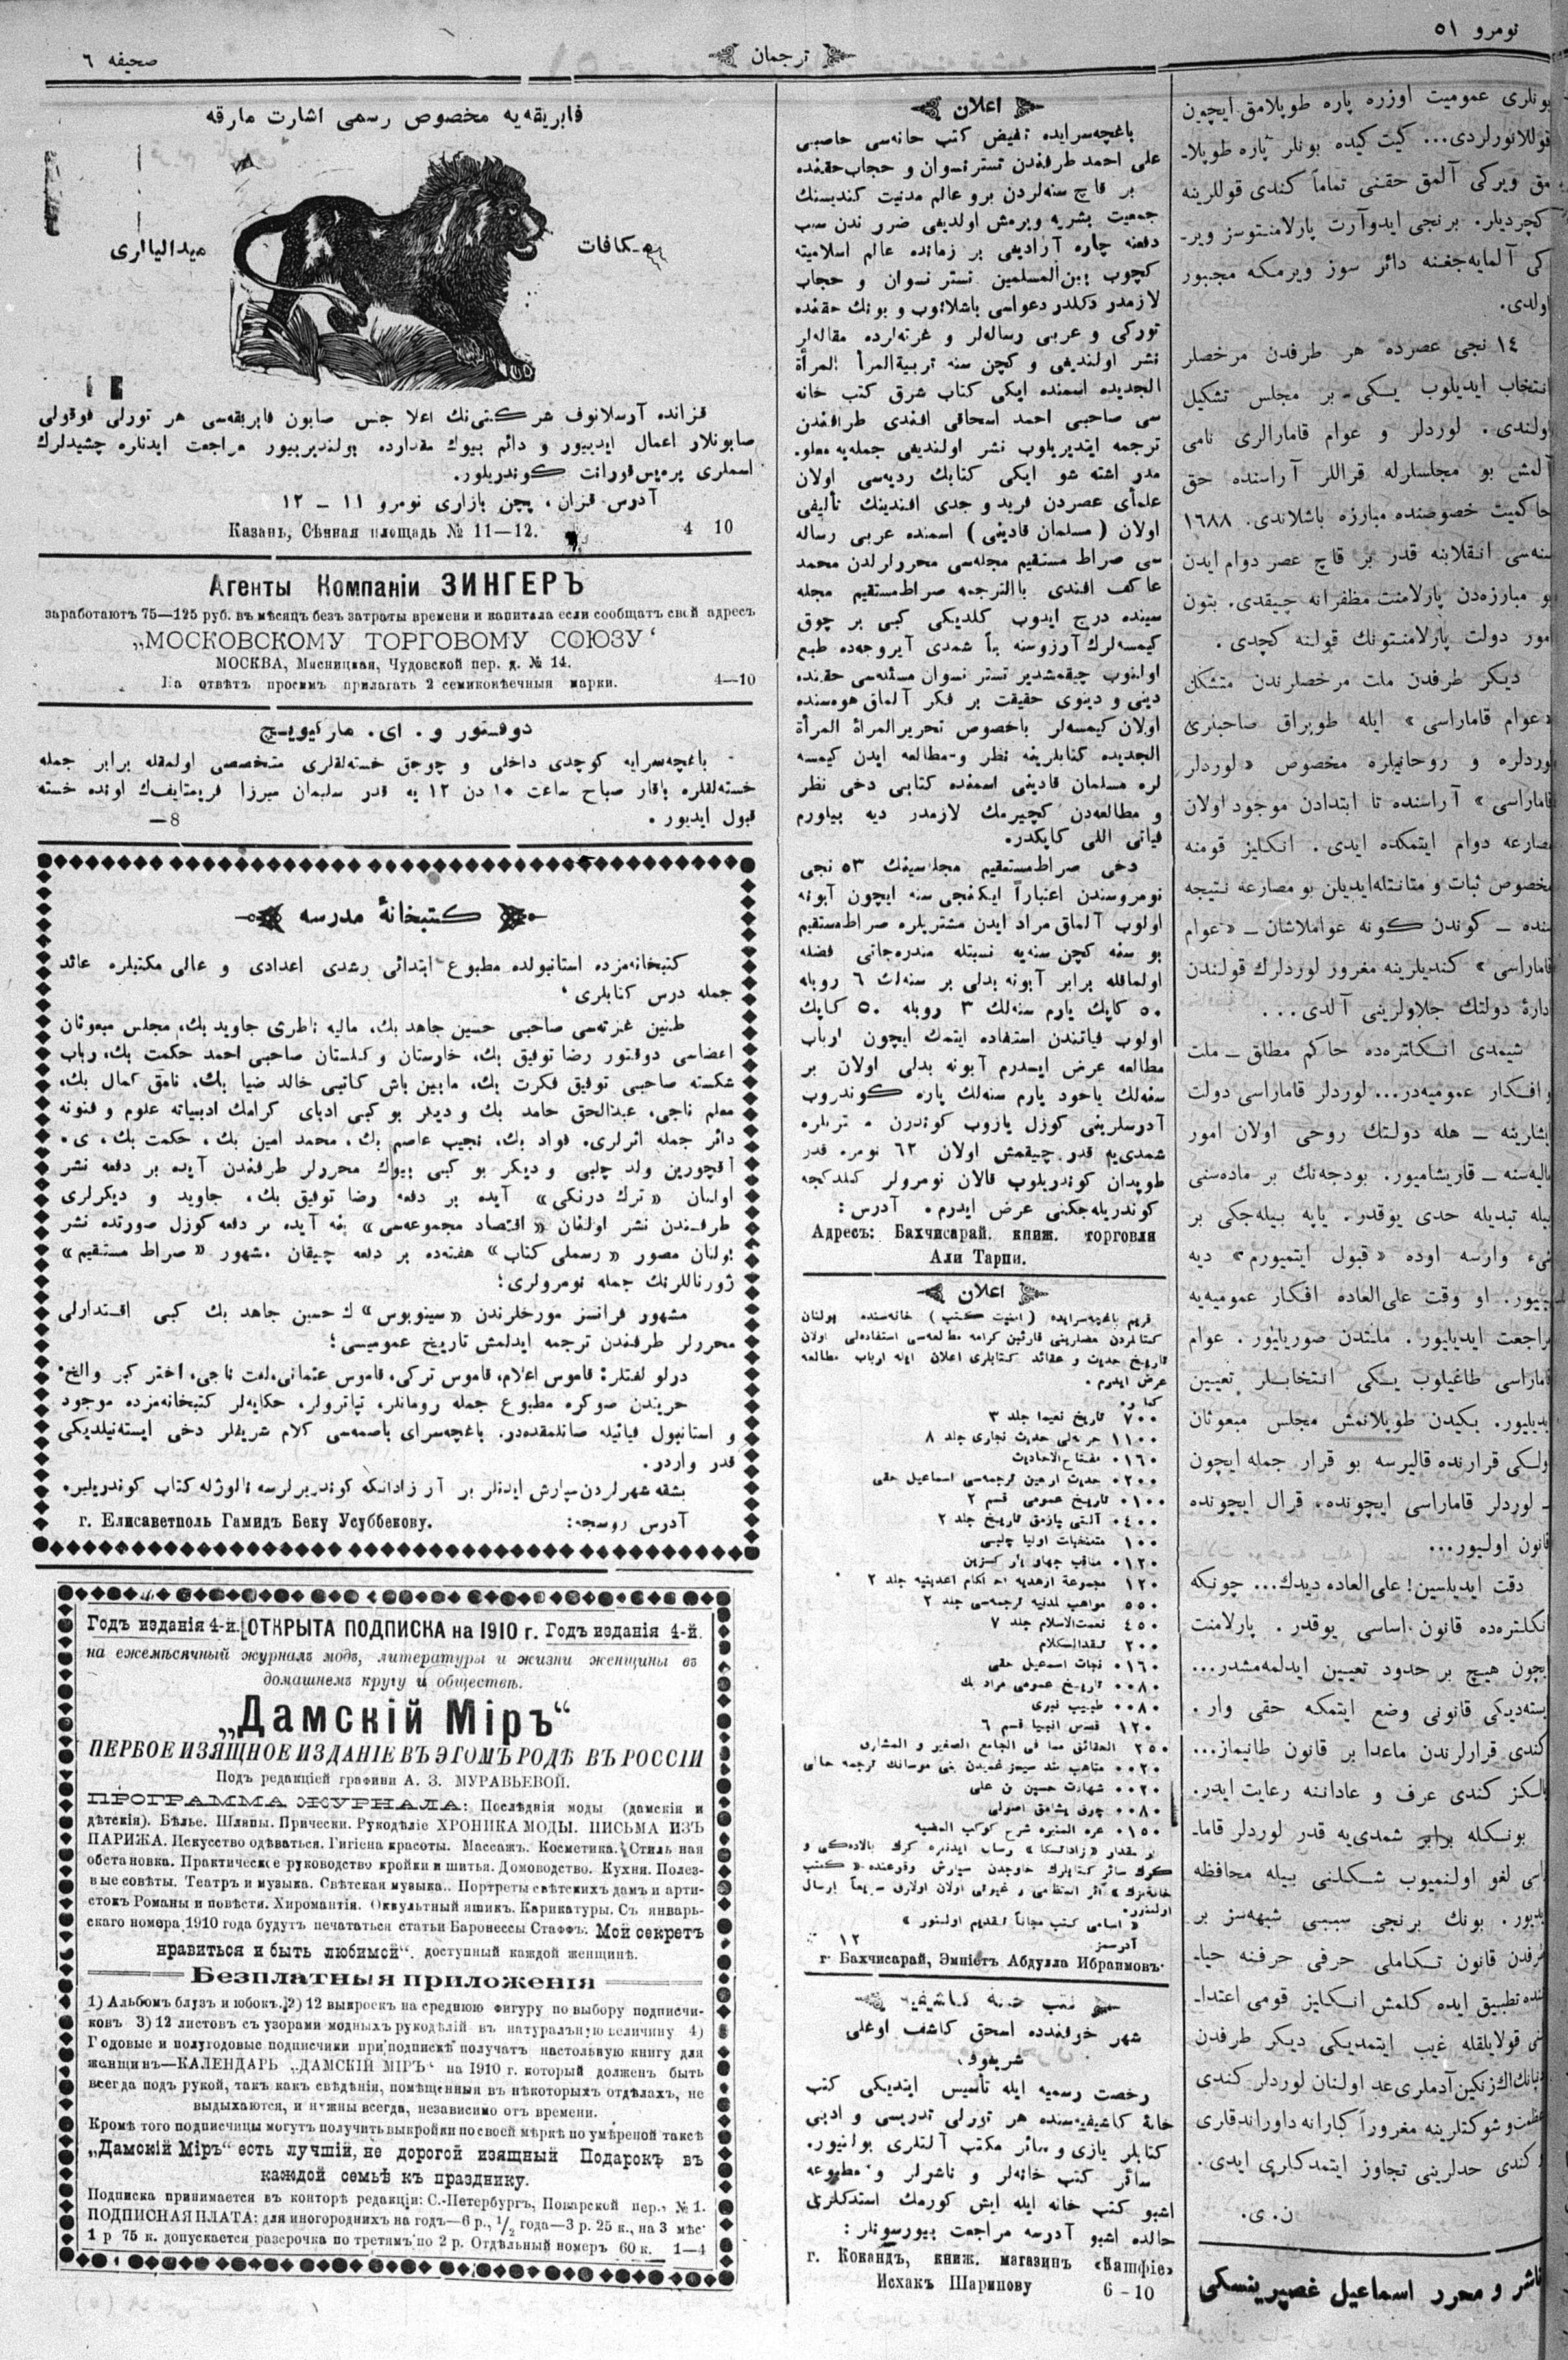 نومرو ٥١
ترجمان
صحیفه ٦
بونلری عمومیت اوزره پاره طوپلامق ایچون
قوللانورلردی... کیت کیده بونلر پاره طوپلا-
مق ویرکی آلمق حقنی تماماً کندی قوللرینه
کچردیلر. برنجی ایدوآرت پارلامنتوسز ویر-
کی آلمایه‌جغنه دائر سوز ویرمکه مجبور
اولدی.
١٤ نجی عصرده هر طرفدن مرخصلر
انتخاب ایدیلوب یکی بر مجلس تشکیل
اولندی. لوردلر و عوام قامارالری نامی
آلمش بو مجلسلرله قراللر آراسنده حق
حاکمیت خصوصنده مبارزه باشلاندی. ١٦٨٨
سنه‌سی انقلابنه قدر بر قاچ عصر دوام ایدن
بو مبارزه‌دن پارلامنت مظفرانه چیقدی. بتون
امور دولت پارلامنتونك قولنه کچدی.
دیکر طرفدن ملت مرخصلرندن متشکل
«عوام قاماراسی» ایله طوپراق صاحبلری
لوردلره و روحانیلره مخصوص «لوردلر
قاماراسی» آراسنده تا ابتدادن موجود اولان
مصارعه دوام ایتمکده ایدی. انکلیز قومنه
مخصوص ثبات و متانتله ایدیلن بو مصارعه نتیجه
سنده — کوندن کونه عواملاشان — «عوام
قاماراسی» کندیلرینه مغرور لوردلرك قولندن
اداره دولتك جلاولرینی آلدی...
شیمدی انکلتره‌ده حاکم مطلق — ملت
و افکار عمومیه‌در... لوردلر قاماراسی دولت
ایشارینه — هله دولتك روحی اولان امور
مالیه‌سنه — قاریشامیور. بودجه‌نك بر ماده‌سنی
بیله تبدیله حدی یوقدر. یاپه بیله‌جکی بر
شیء وارسه اوده «قبول ایتمیورم» دیه
بیلیور. او وقت علی‌العاده افکار عمومیه‌یه
مراجعت ایدیلیور. ملتدن صوریلیور. عوام
قاماراسی طاغیلوب یکی انتخابلر تعیین
ایدیلیور. یکیدن طوپلانمش مجلس مبعوثان
اولکی قرارنده قالیرسه بو قرار جمله ایچون
— لوردلر قاماراسی ایچونده، قرال ایچونده
قانون اولیور...
دقت ایدیلسین! علی‌العاده دیدك... چونکه
انکلتره‌ده قانون اساسی یوقدر. پارلامنت
ایچون هیچ بر حدود تعیین ایدلمه‌مشدر...
ایسته‌دیکی قانونی وضع ایتمکه حقی وار.
کندی قرارلرندن ماعدا بر قانون طانیماز...
یالکز کندی عرف و عاداتنه رعایت ایدر.
بونکله برابر شمدی‌یه قدر لوردلر قاما-
راسی لغو اولنمیوب شکلنی بیله محافظه
ایدیور. بونك برنجی سببی شبهه‌سز بر
طرفدن قانون تکاملی حرفی حرفنه حیا-
تنده تطبیق ایده کلمش انکلیز قومی اعتدا-
لنی قولایلقله غیب ایتمدیکی دیکر طرفدن
دنیانك اك زنکین آدملری عد اولنان لوردلر کندی
عظمت و شوکتلرینه مغروراً کبارانه داوراندقاری
و کندی حدلرینی تجاوز ایتمدکلری ایدی.
ن. ی.
ناشر و محرر اسماعیل غصپرینسکی
اعلان
باغچه‌سرایده تفیض کتب خانه‌سی صاحبی
علی احمد طرفندن تستر نسوان و حجاب حقنده
بر قاچ سنه‌لردن برو عالم مدنیت کندیسنك
جمعیت بشریه ویرمش اولدیغی ضرورندن سبب
دفعنه چاره آرادیغی بر زمانده عالم اسلامیته
کچوب بین‌المسلمین تستر نسوان و حجاب
لازمدر دکلدر دعواسی باشلانوب و بونك حقنده
تورکی و عربی رساله‌لر و غزته‌لرده مقاله‌لر
نشر اولندیغی و کچن سنه تربیة‌المرأ المرأة
الجدیده اسمنده ایکی کتاب شرق کتب خانه
سی صاحبی احمد اسحاقی افندی طرفندن
ترجمه ایتدیریلوب نشر اولندیغی جمله‌یه معلو.
مدر اشته شو ایکی کتابك ردیه‌سی اولان
علمأی عصردن فرید وجدی افندینك تألیفی
اولان (مسلمان قادینی) اسمنده عربی رساله
سی صراط مستقیم مجله‌سی محررلرلدن محمد
عاکف افندی باالترجمه صراط‌مستقیم مجله
سینده درج ایدوب کلدیکی کبی بر چوق
کیمسه‌لرك آرزوسنه بناً شمدی آیروجه‌ده طبع
اولنوب چیقمشدیر تستر نسوان مسئله‌سی حقنده
دینی و دینوی حقیقت بر فکر آلماق هوسنده
اولان کیمسه‌لر باخصوص تحریرالمراة المرأة
الجدیده کتابلرینه نظر و مطالعه ایدن کیمسه
لره مسلمان قادینی اسمنده کتابی دخی نظر
و مطالعه‌دن کچیرمك لازمدر دیه بیلورم
فیاتی اللی کاپکدر.
دخی صراط‌مستقیم مجله‌سینك ٥٣ نجی
نومروسندن اعتباراً ایکنجی سنه ایچون آبونه
اولوب آلماق مراد ایدن مشتریلره صراط‌مستقیم
بو سنه کچن سنه‌یه نسبتله مندرجاتی فضله
اولماقله برابر آبونه بدلی بر سنه‌لك ٦ روبله
٥٠ کاپك یارم سنه‌لك ٣ روبله ٥٠ کاپك
اولوب فیاتندن استفاده ایتمك ایچون ارباب
مطالعه عرض ایدرم آبونه بدلی اولان بر
سنه‌لك یاخود یارم سنه‌لك پاره کوندروب
آدرسلرینی کوزل یازوب کوندرن
شمدی‌یه قدر چیقمش اولان ٦٢ نومره قدر
طوپدان کوندریلوب قالان نومرولر کلدکجه
کوندریله‌جکنی عرض ایدرم. آدرس:
Адресъ: Бахчисарай. книж. торговля
Али Тарпи.
اعلان
قریم باغچه‌سرایده (امنیت کتب) خانه‌سنده بولنان
کتابلردن بعضلرینی قارئین کرامه مطالعه‌سی استفاده‌لی اولان
تاریخ حدیث و عقائد کتابلری اعلان ایله ارباب مطالعه
عرض ایدرم.
٧٠٠ تاریخ نعیما جلد ٣
١١٠٠ حدیث بخاری جلد ٨
٠١٦٠ مفتاح‌الاحادیث
٠٢٠٠ حدیث اربعین ترجمه‌سی اسماعیل حقی
٠١٠٠ تاریخ عمومی قسم ٢
٠٤٠٠ آلتی پارمق تاریخ جلد ٢
١٠٠ منتخبات اولیا چلبی
٠١٢٠ مناقب چهار یار کزین
١٢٠ مجموعهٔ جلد ٢
٥٥٠ مواهب لدنیه ترجمه‌سی جلد ٢
٤٥٠ نعمت‌الاسلام جلد ٧
٢٠٠ نقدالکلام
٠١٦٠ نجات اسماعیل حقی
٠٠٨٠ تاریخ عمومی مراد بك
٠٠٨٠ طبیب نبوی
١٢٠ قصص انبیا قسم ٦
٢٥٠ الحقائق مما فی الجامع الصغیر و المشارق
٠٠٢٠ ترجمه حالی
٠٠٢٠ شهادت حسین بن علی
٠٠٨٠ چوق یشامق اصولی
٠١٥٠ شرح کوکب المضیه
«اسامی کتب مجاناً تقدیم اولنور»
آدرسمز
١٢
г Бахчисарай, Эмніетъ Абдулла Ибраимовъ.
کتب خانه کاشفیه
شهر خوقندده اسحق کاشف اوغلی
شریفوف
رخصت رسمیه ایله تأسیس ایتدیکی کتب
خانهٔ کاشفیه‌سنده هر تورلی تدریسی و ادبی
کتابلر یازی و سائر مکتب آلتلری بولنیور.
سائر کتب خانه‌لر و ناشرلر و مطبوعه
اشبو کتب خانه ایله ایش کورمك استدکلری
حالده اشبو آدرسه مراجعت بیورسونلر:
г. Кокандъ, книж. магазинъ «Кашфіе»
Исхакъ Шарипову 6-10
فابریقه‌یه مخصوص رسمی اشارت مارقه
مکافات
میدالیالری
قزانده آرسلانوف شرکتی‌نك اعلا جنس صابون فابریقه‌سی هر تورلی قوقولی
صابونلار اعمال ایدییور و دائم بیوك مقدارده بولندیرییور مراجعت ایدنلره چشیدلرك
اسملری پریس‌قورانت کوندریلور.
آدرس قزان، پچن بازاری نومرو ١١ – ١٢
Казань, Сѣнная площадь № 11—12. 4 10
Агенты Компаніи ЗИНГЕРЪ
заработаютъ 75—125 руб. въ мѣсяцъ безъ затраты времени и капитала если сообщатъ свой адресъ
„МОСКОВСКОМУ ТОРГОВОМУ СОЮЗУ‘
МОСКВА, Мясницкая, Чудовской пер. д. № 14.
На отвѣтъ просимъ прилагать 2 семикопѣечныя марки. 4—10
دوقتور و. ای. مارکیویچ
باغچه‌سرایه کوچدی داخلی و چوجق خسته‌لقلری متخصصی اولمقله برابر جمله
خسته‌لقلره باقار صباح ساعت ١٠ دن ١٢ یه قدر سلیمان میرزا قریمتایف‌ك اونده خسته
قبول ایدیور. 8—
کتبخانهٔ مدرسه
کتبخانه‌مزده استانبولده مطبوع ابتدائی رشدی اعدادی و عالی مکتبلره عائد
جمله درس کتابلری،
طنین غزته‌سی صاحبی حسین جاهد بك، مالیه ناظری جاوید بك، مجلس مبعوثان
اعضاسی دوقتور رضا توفیق بك، خارستان و کلستان صاحبی احمد حکمت بك، رباب
شکسته صاحبی توفیق فکرت بك، مابین باش کاتبی خالد ضیا بك، نامق کمال بك،
معلم ناجی، عبدالحق حامد بك و دیکر بو کبی ادبای کرامك ادبیاته علوم و فنونه
دائر جمله اثرلری. فواد بك، نجیب عاصم بك، محمد امین بك، حکمت بك، ی.
آقچورین ولد چلبی و دیکر بو کبی بیوك محررلر طرفندن آیده بر دفعه نشر
اولنان «ترك درنکی» آیده بر دفعه رضا توفیق بك، جاوید و دیکرلری
طرفندن نشر اولنان «اقتصاد مجموعه‌سی» ینه آیده بر دفعه کوزل صورتده نشر
اولنان مصور «رسملی کتاب» هفته‌ده بر دفعه چیقان مشهور «صراط مستقیم»
ژورناللرنك جمله نومرولری؛
مشهور فرانسز مورخلرندن «سینوبوس» ك حسین جاهد بك کبی اقتدارلی
محررلر طرفندن ترجمه ایدلمش تاریخ عمومیسی؛
درلو لغتلر: قاموس اعلام، قاموس ترکی، قاموس عثمانی، لغت ناجی، اختر کبیر والخ.
حریتدن صوکره مطبوع جمله رومانلر، تیاترولر، حکایه‌لر کتبخانه‌مزده موجود
و استانبول فیاتیله صاتلمقده‌در. باغچه‌سرای باصمه‌سی کلام شریفلر دخی ایسته‌نیلدیکی
قدر واردر.
بشقه شهرلردن سپارش ایدنلر بر آز زاداتکه کوندیریرلرسه نالوژله کتاب کوندریلیر.
آدرس روسجه: г. Елисаветполь Гамидъ Беку Усуббекову.
Годъ изданія 4-й. ОТКРЫТА ПОДПИСКА на 1910 г. Годъ изданія 4-й.
на ежемѣсячный журналъ модъ, литературы и жизни женщины въ
домашнемъ кругу и обществѣ.
„Дамскій Міръ“
ПЕРВОЕ ИЗЯЩНОЕ ИЗДАНІЕ ВЪ ЭТОМЪ РОДѢ ВЪ РОССІИ
Подъ редакціей графини А. З. МУРАВЬЕВОЙ.
ПРОГРАММА ЖУРНАЛА: Послѣднія моды (дамскія и
дѣтскія). Бѣлье. Шляпы. Прически. Рукодѣліе ХРОНИКА МОДЫ. ПИСЬМА ИЗЪ
ПАРИЖА. Искусство одѣваться. Гигіена красоты. Массажъ. Косметика. Стиль ная
обстановка. Практическое руководство кройки и шитья. Домоводство. Кухня. Полез-
ные совѣты. Театръ и музыка. Свѣтская музыка.. Портреты свѣтскихъ дамъ и арти-
стокъ Романы и повѣсти. Хиромантія. Оккультный ящикъ. Карикатуры. Съ январь-
скаго номера 1910 года будутъ печататься статьи Баронессы Стаффъ. Мой секретъ
нравиться и быть любимой“. доступный каждой женщинѣ.
Безплатныя приложенія
1) Альбомъ блузъ и юбокъ. 2) 12 выкроекъ на среднюю фигуру по выбору подписчи-
ковъ 3) 12 листовъ съ узорами модныхъ рукодѣлій въ натуральную величину 4)
Годовые и полугодовые подписчики при подпискѣ получатъ настольную книгу для
женщинъ—КАЛЕНДАРЬ „ДАМСКІЙ МІРЪ‘ на 1910 г. который долженъ быть
всегда подъ рукой, такъ какъ свѣдѣнія, помѣщенныя въ нѣкоторыхъ отдѣлахъ, не
выдыхаются, и нужны всегда, независимо отъ времени.
Кромѣ того подписчицы могутъ получить выкройки по своей мѣркѣ по умѣреной таксѣ
„Дамскій Міръ“ есть лучшій, не дорогой изящный Подарокъ въ
каждой семьѣ къ празднику.
Подписка принимается въ конторѣ редакціи: С.-Петербургъ, Поварской пер., № 1.
ПОДПИСНАЯ ПЛАТА: для иногороднихъ на годъ—6 р., 1/2 года—3 р. 25 к., на 3 мѣс.
1 р 75 к. допускается разсрочка по третямъ по 2 р. Отдѣльный номеръ 60 к. 1—4